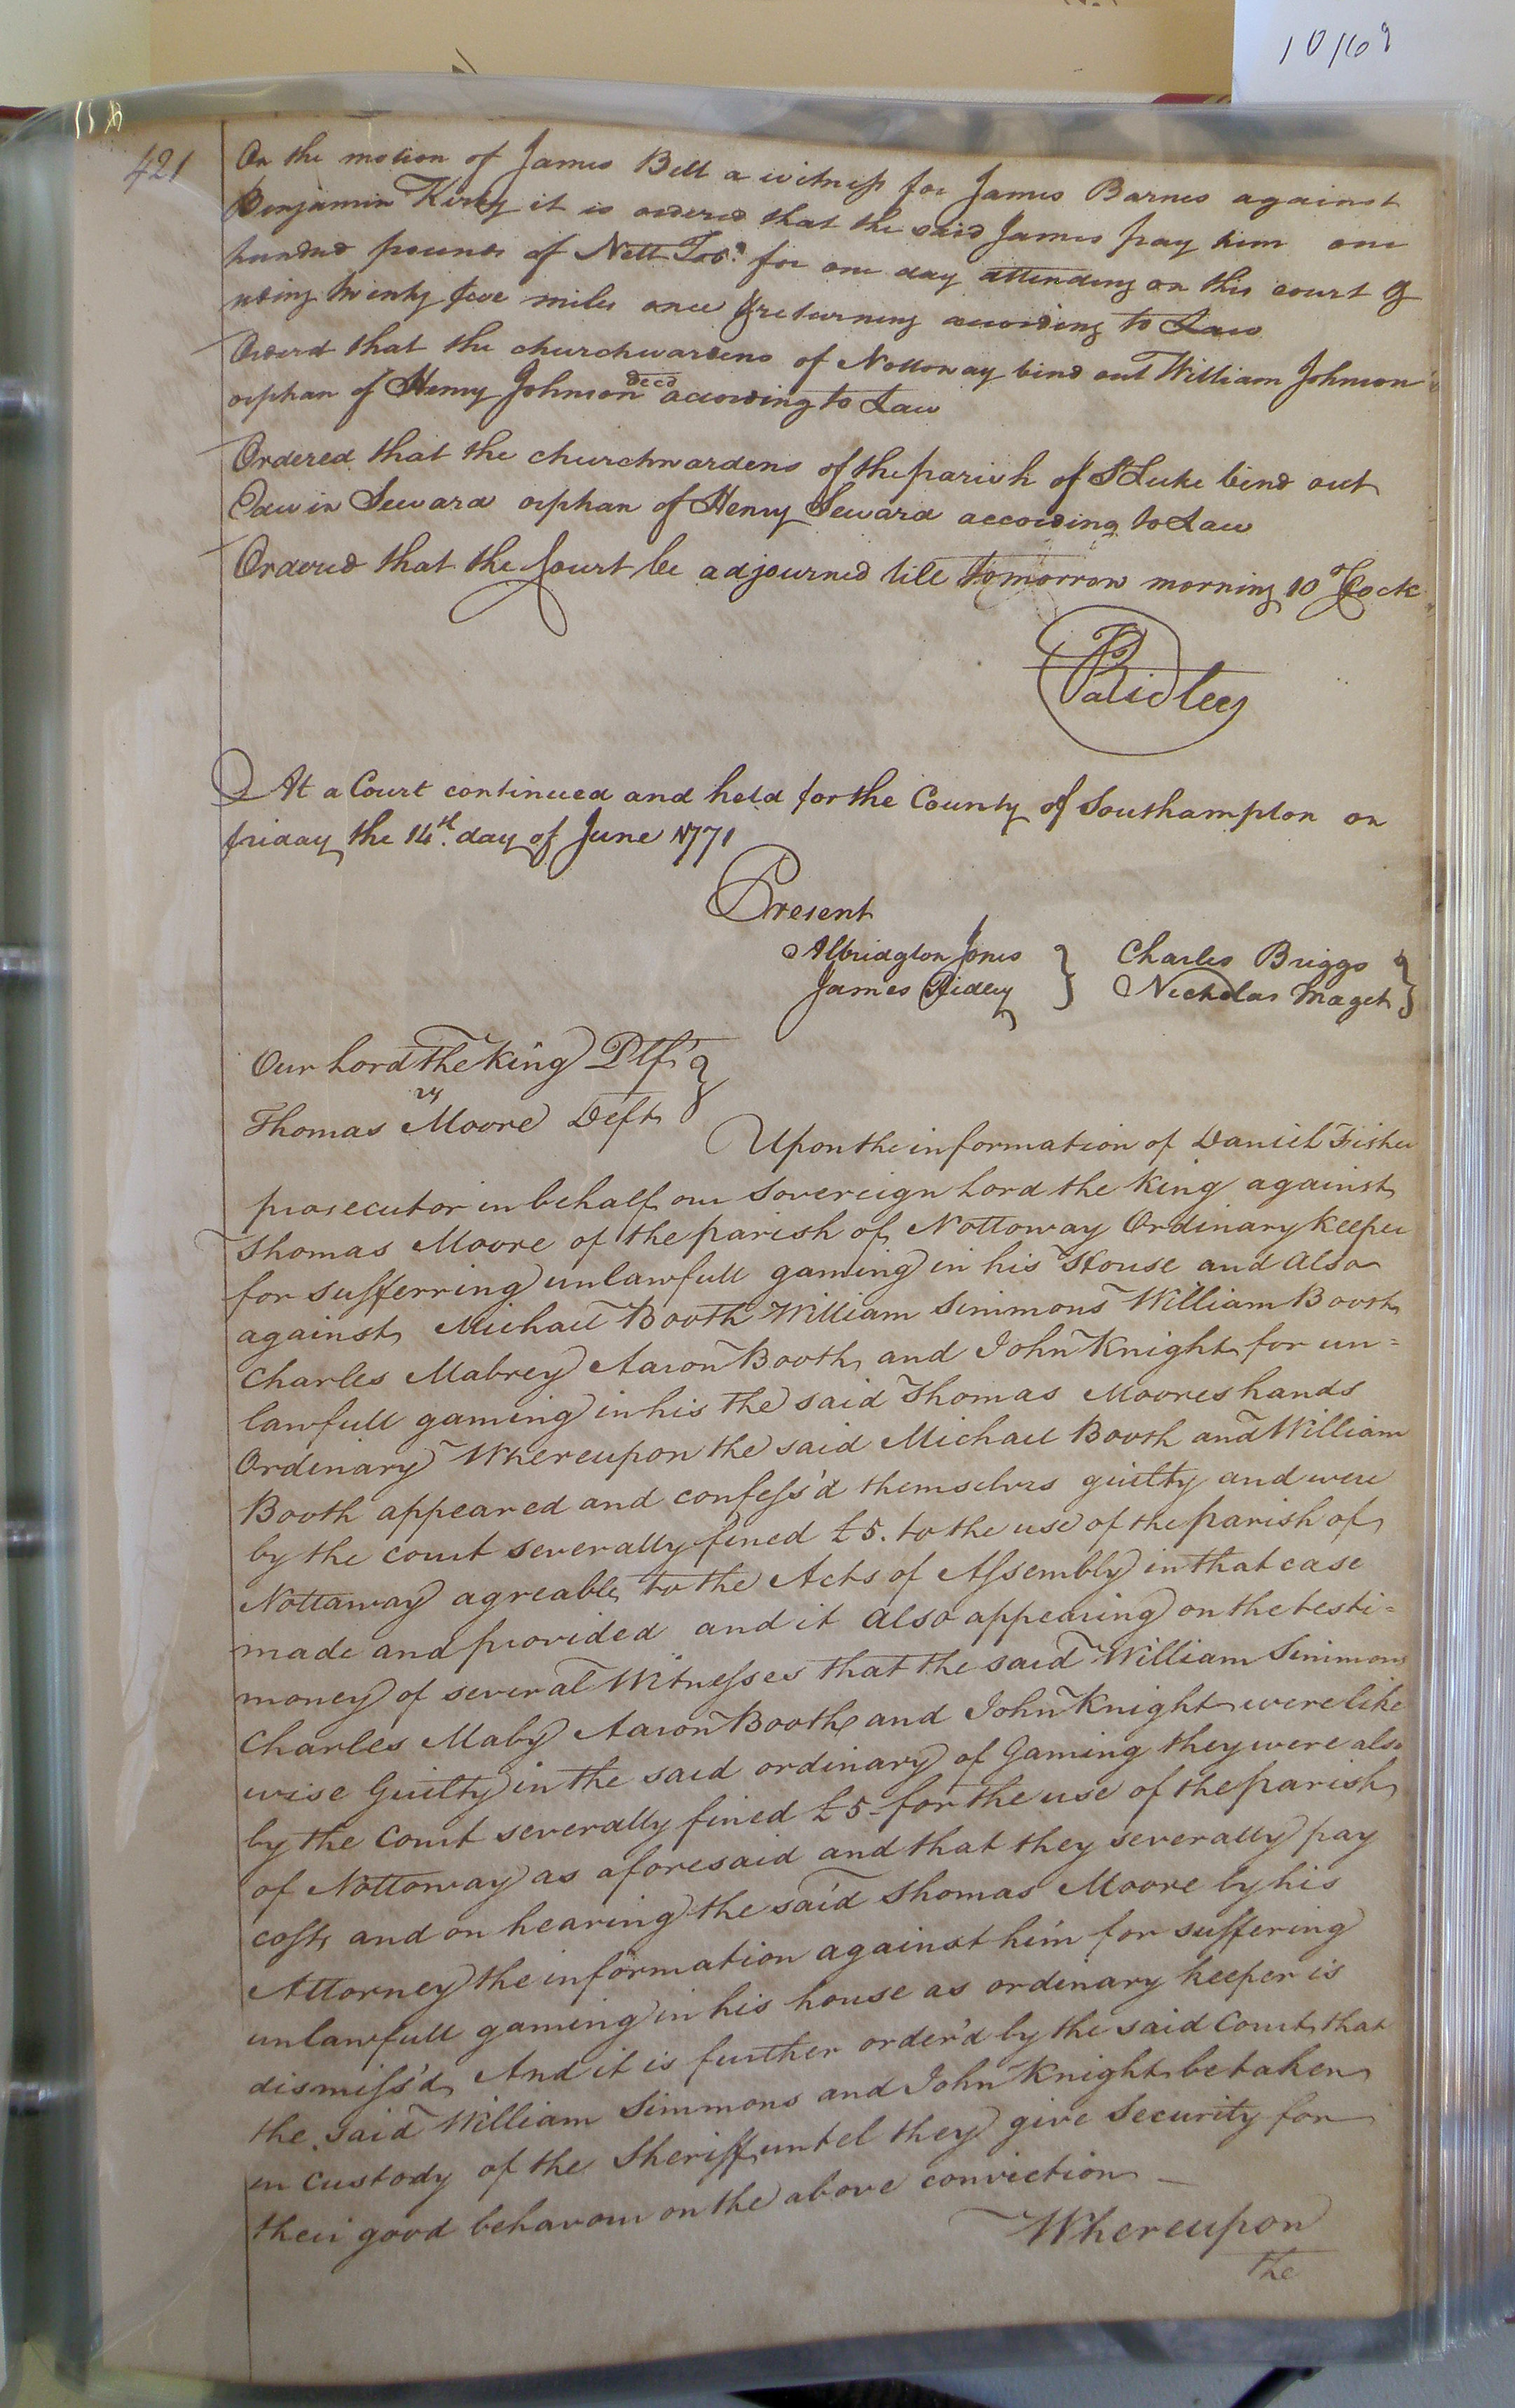 421
On the motion of James Bell a witness for James Barnes against
Benjamin Kirby it is ordered that the said James pay him one
hundred pounds of Nett Tobo. for one day attending on this court &
riding twenty five miles once & returning according to Law
Orderd that the churchwardens of Nottoway bind out William Johnson
orphan of Henry Johnson decd according to Law
Ordered that the churchwardens of the parish of St Luke bind out
Edwin Seward orphan of Henry Seward according to Law
Ordered that the Court be adjourned till tomorrow morning 10 oClock
Ridley
At a Court continued and held for the County of Southampton on
friday the 14th. day of June 1771
Present
Albridgton Jones } Charles Briggs }
James Ridley } Nicholas Maget }
Our Lord The King Pltf }
vs
Thomas Moore Deft
Upon the information of Daniel Fisher
prosecutor in behalf our Sovereign Lord the King against
Thomas Moore of the parish of Nottoway Ordinary Keeper
for sufferring unlawfull gaming in his House and also
against Michael Booth William Simmons William Booth
Charles Mabrey Aaron Booth and John Knight for un=
lawfull gaming in his the said Thomas Moores hands
Ordinary Whereupon the said Michael Booth and William
Booth appeared and confess'd themselves guilty and were
by the court severally fined £5. to the use of the parish of
Nottaway agreable to the Acts of Assembly in that case
made and provided and it also appearing on the testi=
money of several Witnesses that the said William Simmons
Charles Maby Aaron Booth and John Knight were like
wise Guilty in the said ordinary of Gaming they were also
by the Court severally fined £5 for the use of the parish
of Nottoway as aforesaid and that they severally pay
costs and on hearing the said Thomas Moore by his
Attorney the information against him for suffering
unlawfull gaming in his house as ordinary keeper is
dismiss'd And it is further order'd by the said Court that
the said William Simmons and John Knight be taken
in custody of the Sheriff untel they give Security for
their good behavour on the above conviction —
Whereupon
the